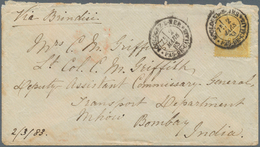 Via Brindisi
Mrs E. M. Griffith
Lt. Col. E. M. Griffith
Deputy Assistant Commissary General,
Transport Department
Mhow
Bombay
India.
2/3/88.